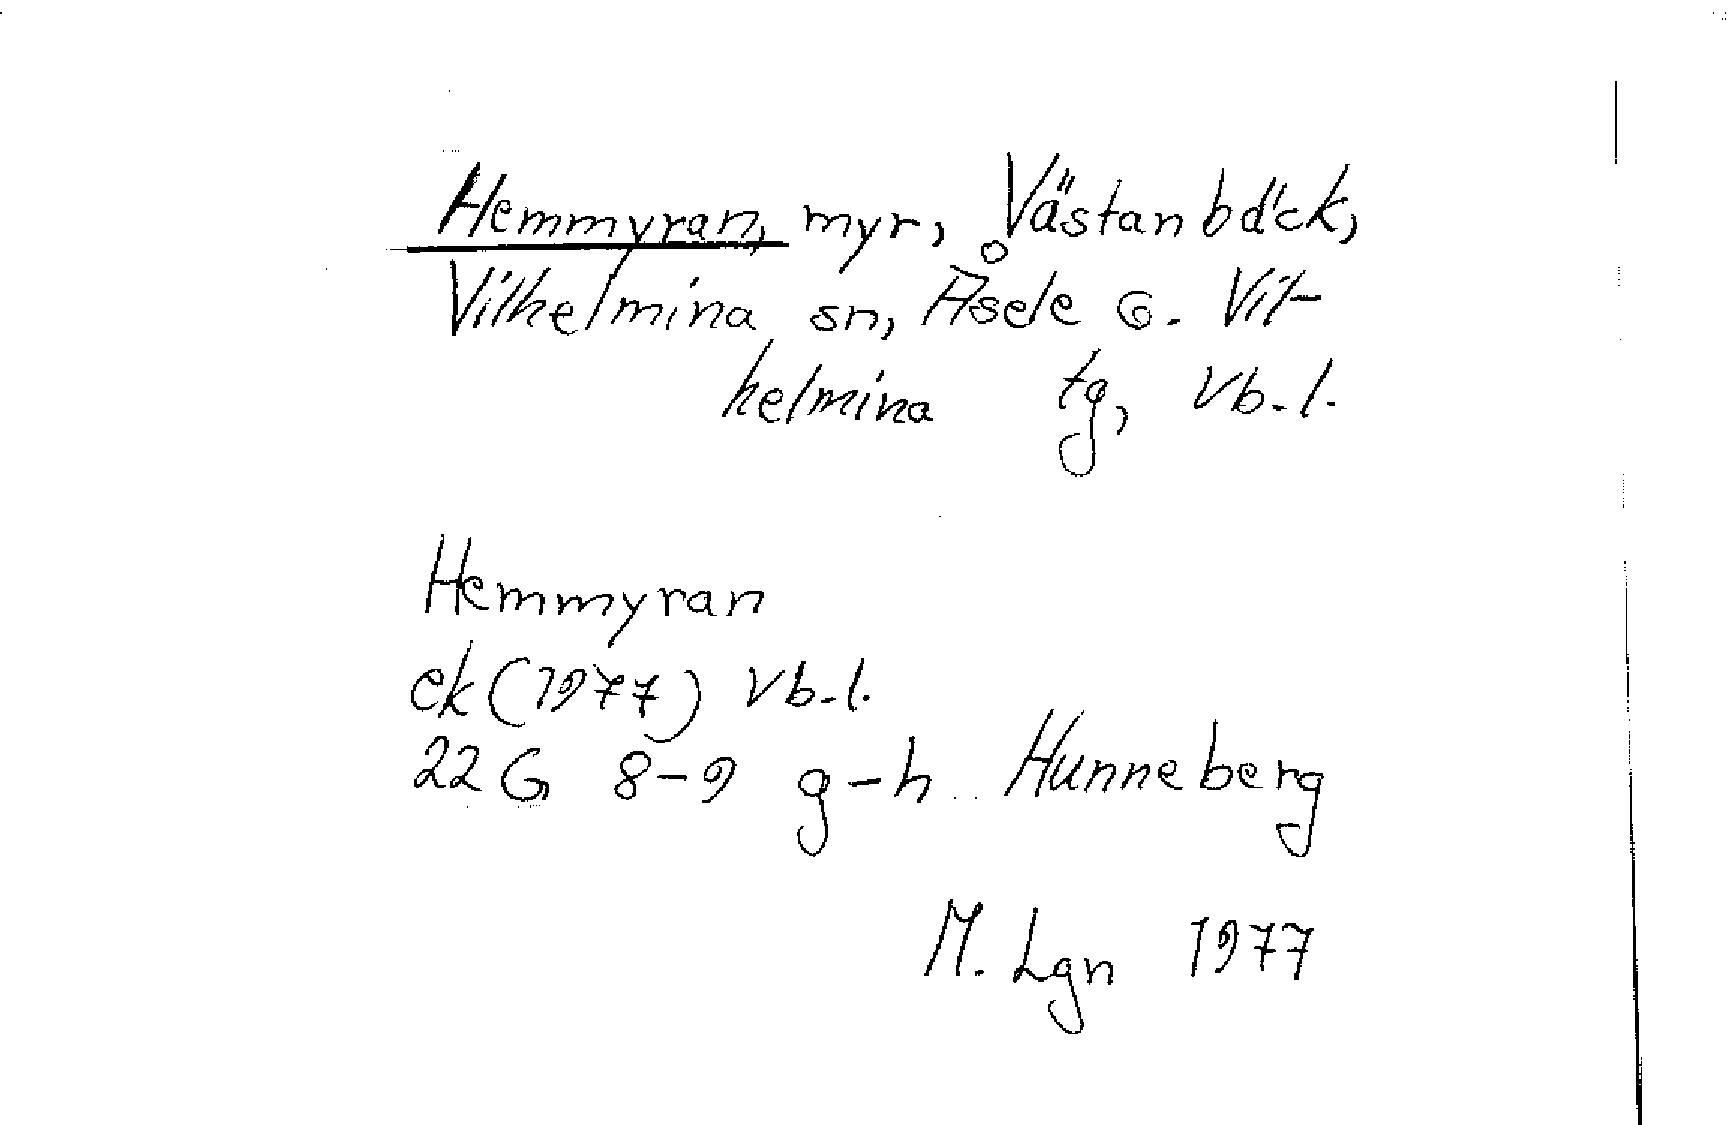 Hemmyran, myr, Västanbäck,
Vilhelmina sn, Åsele G. Vil-
helmina tg, Vb. l.
Hemmyran
ek (1977) Vb. l.
22 G 8-9 g-h Hunneberg
M. Lgn 1977